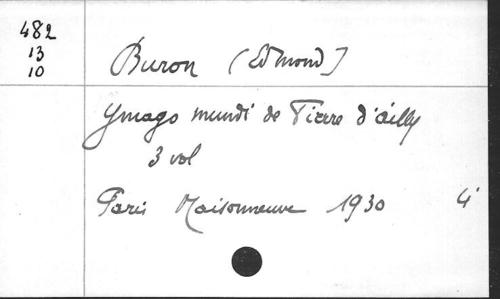 482
13
10
Buron (Edmond)
Ymago mundi de Pierre d'ailly
3 vol
Paris Maisonneuve 1930 4°